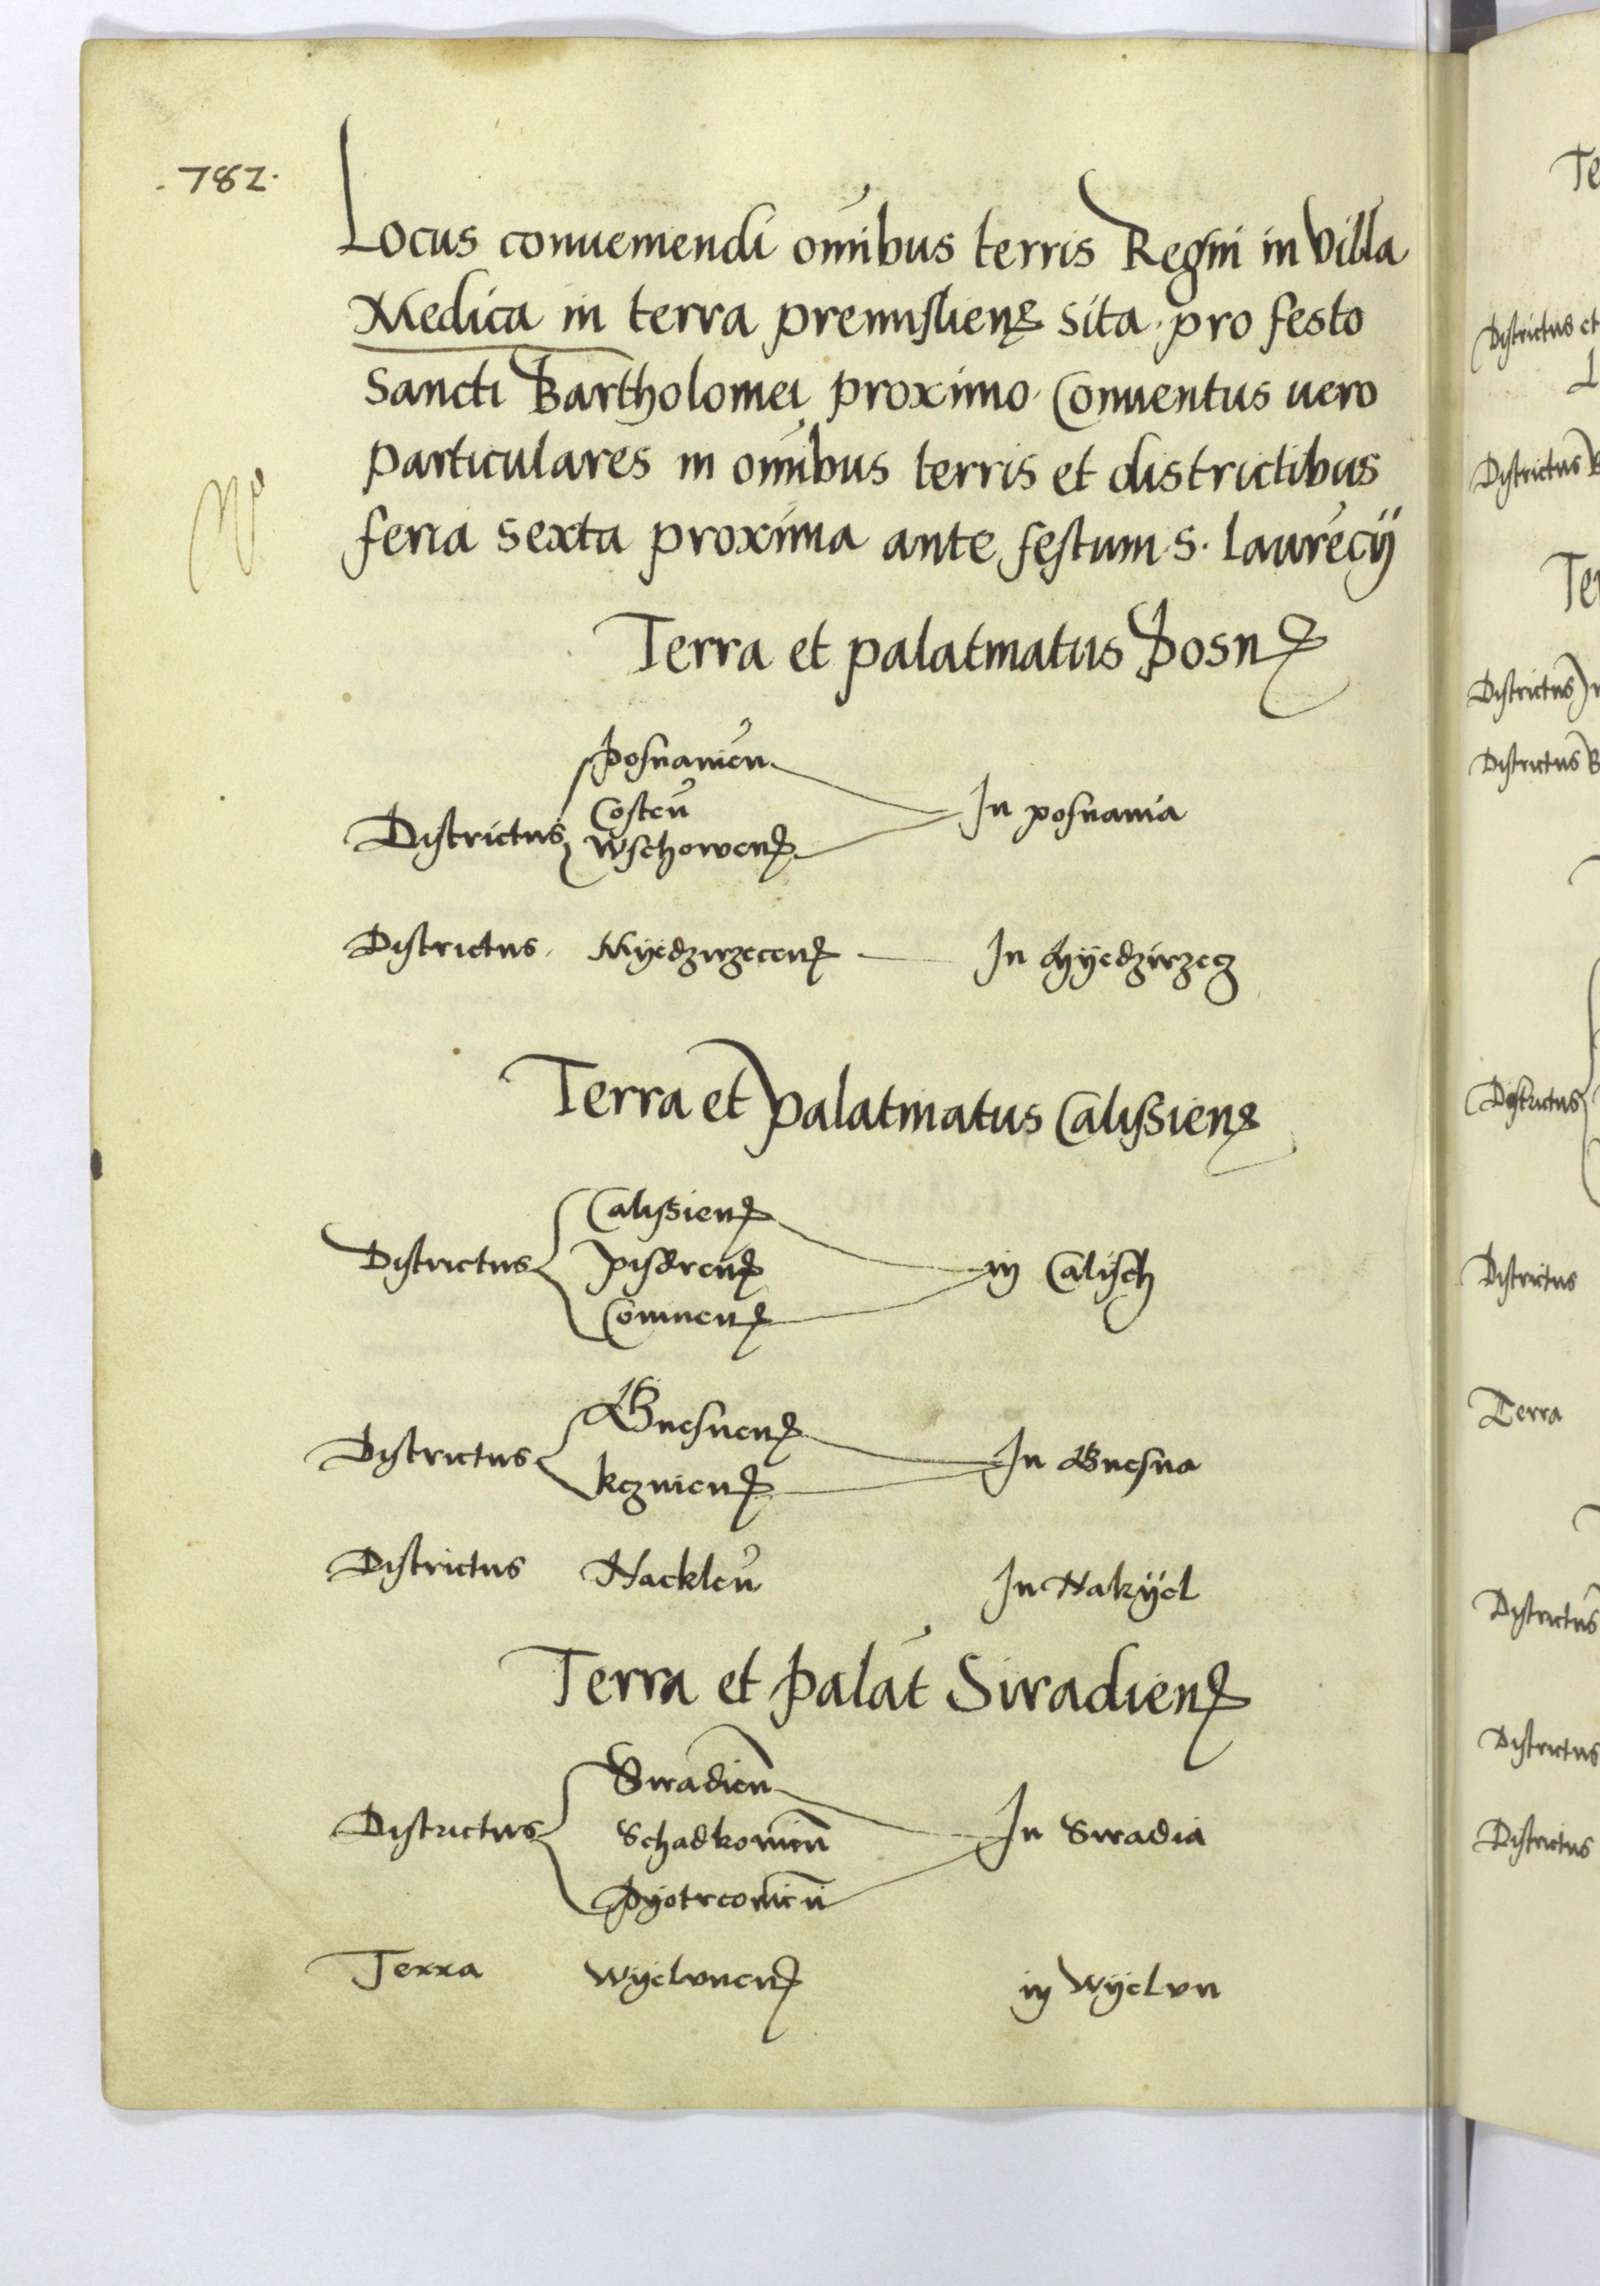 .782.
Locus conueniendi oı̄bus terris Regni in villa
Medica in terra premislien̄ sita. pro festo
Sancti Bartholomei proximo. Conuentus uero
particulares in oı̄bus terris et districtibus
feria sexta proxima ante festum s. Laurēcij
Terra et palatinatus Posn̄
Posnanien̄
Costen̄
Districtus Wschowen̄ In posnania
Districtus. Myedzirzecen̄ In Myedzirzecz
Terra et palatinatus Calissien̄
Calissien̄
Districtus pisdren̄ in Calisch
Coninen̄
Districtus Gnesnen̄ In Gnesna
kcznien̄
Districtus Nacklen̄ In Nakyel
Terra et Palat̄ Siradien̄
Siradien̄
Districtus Schadkowien̄ In Siradia
Pyotrcowien̄
Terra Wyelunen̄ in Wyelun
Te
Districtus et
Districtus
Ter
Districtus
Districtus
Districtus
Districtus
Terra
Districtus
Districtus
Districtus